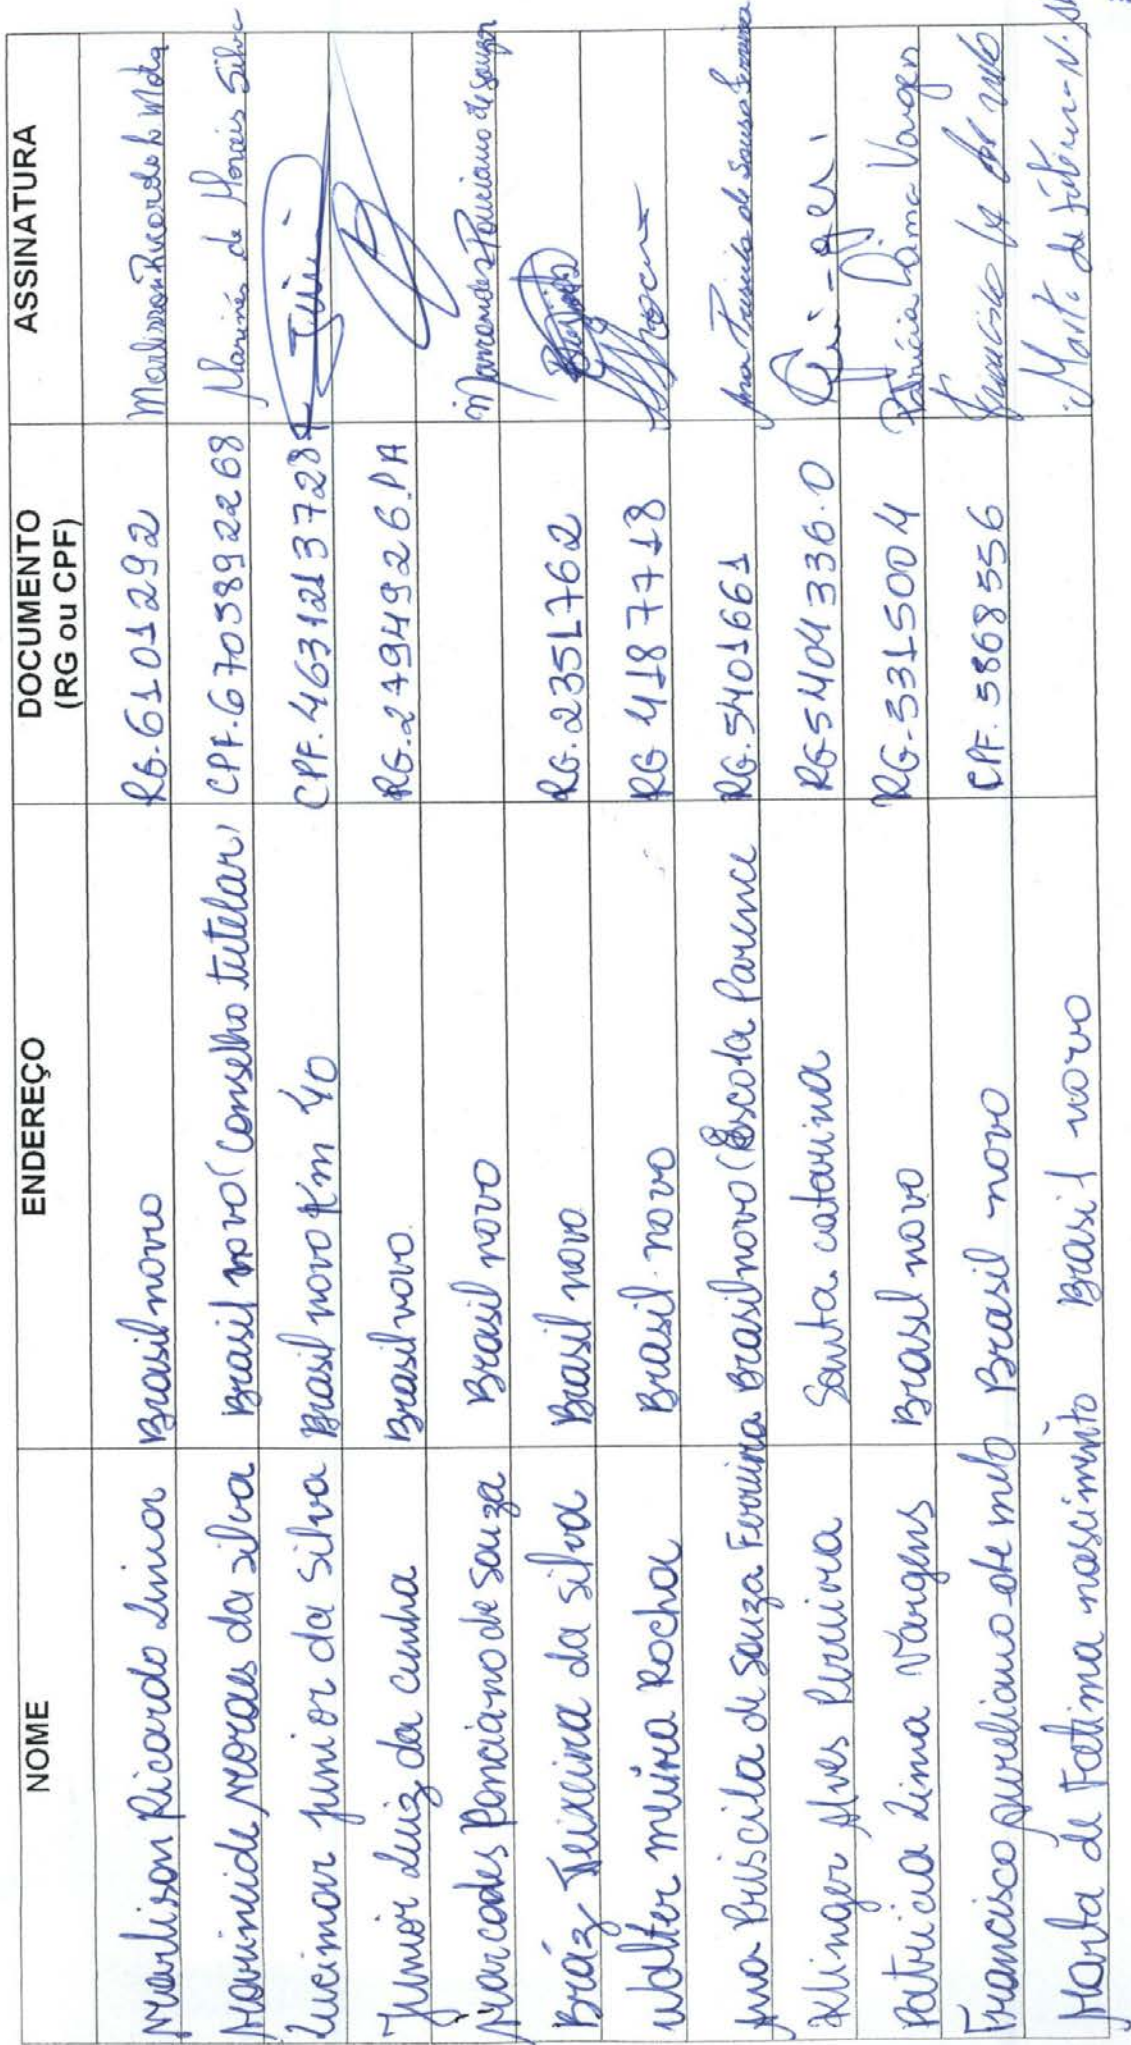 NOME ENDEREÇO DOCUMENTO (RG ou CPF) ASSINATURA
Marlison Ricardo Lima Brasil novo RG-6101292 Marlison Ricardo L. Mota
Marineide Moraes da Silva Brasil novo (Conselho tutelar) CPF-67038922268 Marines de Morais Silva
Lucimar junior da Silva Brasil novo Km 40 CPF-4631213728
Junior Luiz da cunha Brasil novo RG.2494926.PA
Marcodes Ponciano de Souza Brasil novo
Bráz Teixeira da silva Brasil novo RG.2351762
Walter meira Rocha Brasil novo RG 4187718
Ana Priscila de Souza Ferreira Brasil novo (Escola Parence RG.5401661 Ana Priscila de Sousa Ferreira
Klinger Alves Pereira Santa catarina RG 5404336.0
Patricia Lima Vargens Brasil novo RG-3315004 Patrícia Lima Vargens
Francisco aureliano de melo Brasil novo CPF.5868556
Marta de Fatima nascimento Brasil novo